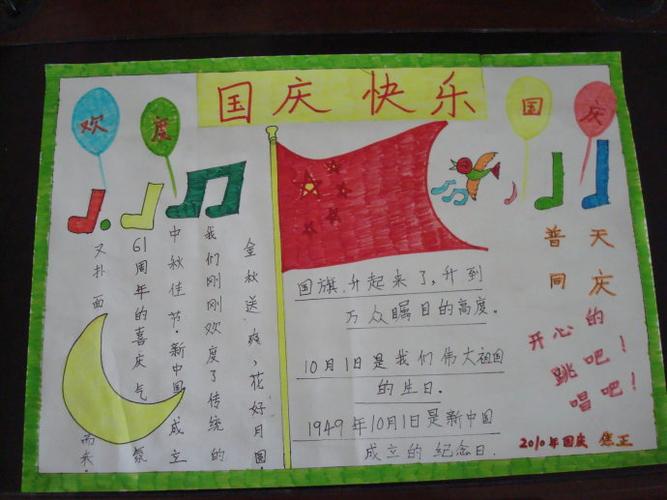 国庆 快乐
欢度
国庆
金秋送爽、花好月圆,
我们刚刚欢度了传统的
中秋佳节.新中国成立
61周年的喜庆气氛
又扑面而来.
国旗升起来了,升到
万众瞩目的高度.
10月1日是我们伟大祖国
的生日.
1949年10月1日是新中国
成立的纪念日.
普天
同庆
开心的
跳吧!
唱吧!
2010年国庆